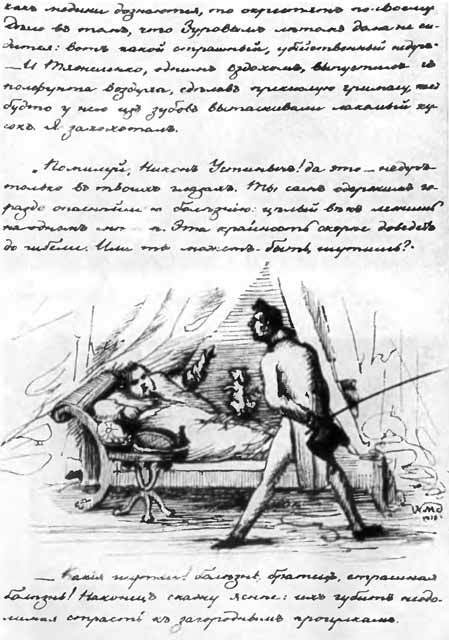 какъ медики дознаются, то окрестятъ по-своему.
Дѣло въ томъ, что Зуровымъ лѣтомъ дома не си-
дится: вотъ какой страшный, убійственный недугъ.
— И Тяжеленко, однимъ вздохомъ, выпустилъ съ
полфунта воздуха, сдѣлавъ прежалкую гримасу, какъ
будто у него изъ зубовъ вытаскивали лакомый ку-
сокъ. Я захохоталъ.
„Помилуй, Никонъ Устинычъ! да это — недугъ
только въ твоихъ глазахъ. Ты самъ одержимъ го-
раздо опаснѣйшею болѣзнію: цѣлый вѣкъ лежишь
на одномъ Эта крайность скорѣе доведетъ
до гибели. Или ты, можетъ-быть, шутишь?"
WMD
— Какія шутки! болѣзнь, братецъ, страшная
болѣзнь! Наконецъ скажу яснѣе: ихъ губитъ неодо-
лимая страсть къ загороднымъ прогулкамъ.